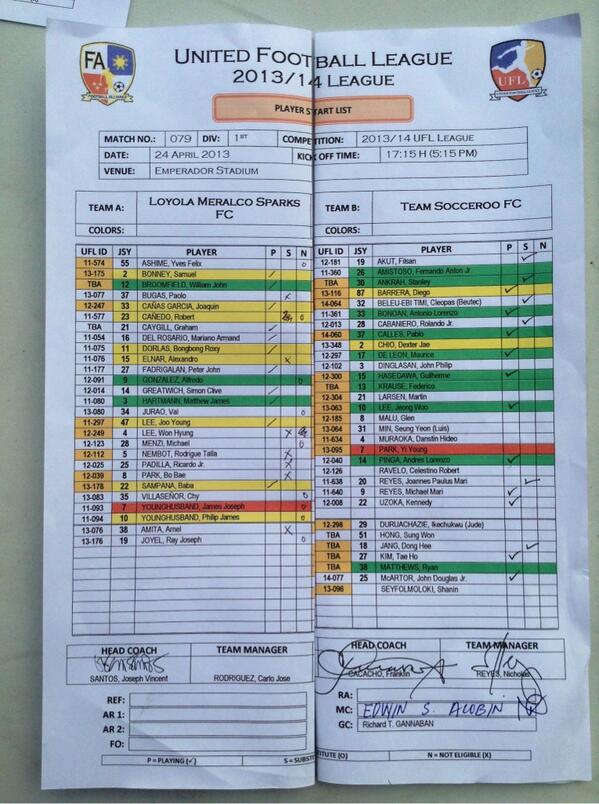 FA
FOOTBALL ALLIANCE
UNITED FOOTBALL LEAGUE
2013/14 LEAGUE
UFL
PLAYER START LIST
MATCH NO.: 079 DIV: 1ST COMPETITION: 2013/14 UFL LEAGUE
DATE: 24 APRIL 2013 KICK OFF TIME: 17:15 H (5:15 PM)
VENUE: EMPERADOR STADIUM
TEAM A: LOYOLA MERALCO SPARKS FC
COLORS:
UFL ID JSY PLAYER P S N
11-574 55 ASHIME, Yves Felix O
13-175 2 BONNEY, Samuel ✓
TBA 12 BROOMFIELD, William John ✓
13-077 37 BUGAS, Paolo X
12-247 33 CAÑAS GARCIA, Joaquin ✓
11-577 23 CAÑEDO, Robert O
TBA 21 CAYGILL, Graham ✓
11-054 16 DEL ROSARIO, Mariano Armand ✓
11-075 11 DORLAS, Bongbong Roxy ✓
11-076 15 ELNAR, Alexandro X
11-177 27 FADRIGALAN, Peter John ✓
12-091 9 GONZALEZ, Alfredo O
12-014 14 GREATWICH, Simon Clive ✓
11-080 3 HARTMANN, Matthew James ✓
13-080 34 JURAO, Val O
11-297 47 LEE, Joo Young ✓
12-249 4 LEE, Won Hyung X
12-123 28 MENZI, Michael O
12-112 5 NEMBOT, Rodrigue Talla X
12-025 25 PADILLA, Ricardo Jr. X
12-039 8 PARK, Bo Bae X
13-178 22 SAMPANA, Baba ✓
13-083 35 VILLASEÑOR, Chy O
11-093 7 YOUNGHUSBAND, James Joseph O
11-094 10 YOUNGHUSBAND, Philip James O
13-076 38 AMITA, Arnel X
13-176 19 JOYEL, Ray Joseph O
HEAD COACH TEAM MANAGER
SANTOS, Joseph Vincent RODRIGUEZ, Carlo Jose
REF:
AR 1:
AR 2:
FO:
TEAM B: TEAM SOCCEROO FC
COLORS:
UFL ID JSY PLAYER P S N
12-181 19 AKUT, Filsan ✓
11-360 26 AMISTOSO, Fernando Anton Jr. ✓
TBA 30 ANKRAH, Stanley ✓
13-116 87 BARRERA, Diego ✓
14-064 32 BELEU-EBI TIMI, Cleopas (Beutec) ✓
11-361 33 BONOAN, Antonio Lorenzo ✓
12-013 28 CABANIERO, Rolando Jr. ✓
14-060 37 CALLES, Pablo ✓
13-348 2 CHIO, Dexter Jae
12-297 17 DE LEON, Maurice ✓
12-102 3 DINGLASAN, John Philip
12-300 15 HASEGAWA, Guilherme ✓
TBA 13 KRAUSE, Federico
12-304 21 LARSEN, Martin
13-063 10 LEE, Jeong Woo ✓
12-185 8 MALU, Glen
13-064 31 MIN, Seung Yeon (Luis)
11-634 4 MURAOKA, Danstin Hideo
13-095 7 PARK, Yi Young
12-040 14 PINGA, Andres Lorenzo ✓
12-126 RAVELO, Celestino Robert
11-638 20 REYES, Joannes Paulus Mari ✓
11-640 9 REYES, Michael Mari ✓
12-008 22 UZOKA, Kennedy ✓
12-298 29 DURUACHAZIE, Ikechukwu (Jude)
TBA 51 HONG, Sung Won
TBA 18 JANG, Dong Hee ✓
TBA 27 KIM, Tae Ho ✓
TBA 38 MATTHEWS, Ryan
14-077 25 McARTOR, John Douglas Jr. ✓
13-096 SEYFOLMOLOKI, Shanin
HEAD COACH TEAM MANAGER
CACACHO, Franklin REYES, Nicholas
RA:
MC: EDWIN S. ALOBIN
GC: Richard T. GANNABAN
P = PLAYING (✓) S = SUBSTITUTE (O) N = NOT ELIGIBLE (X)